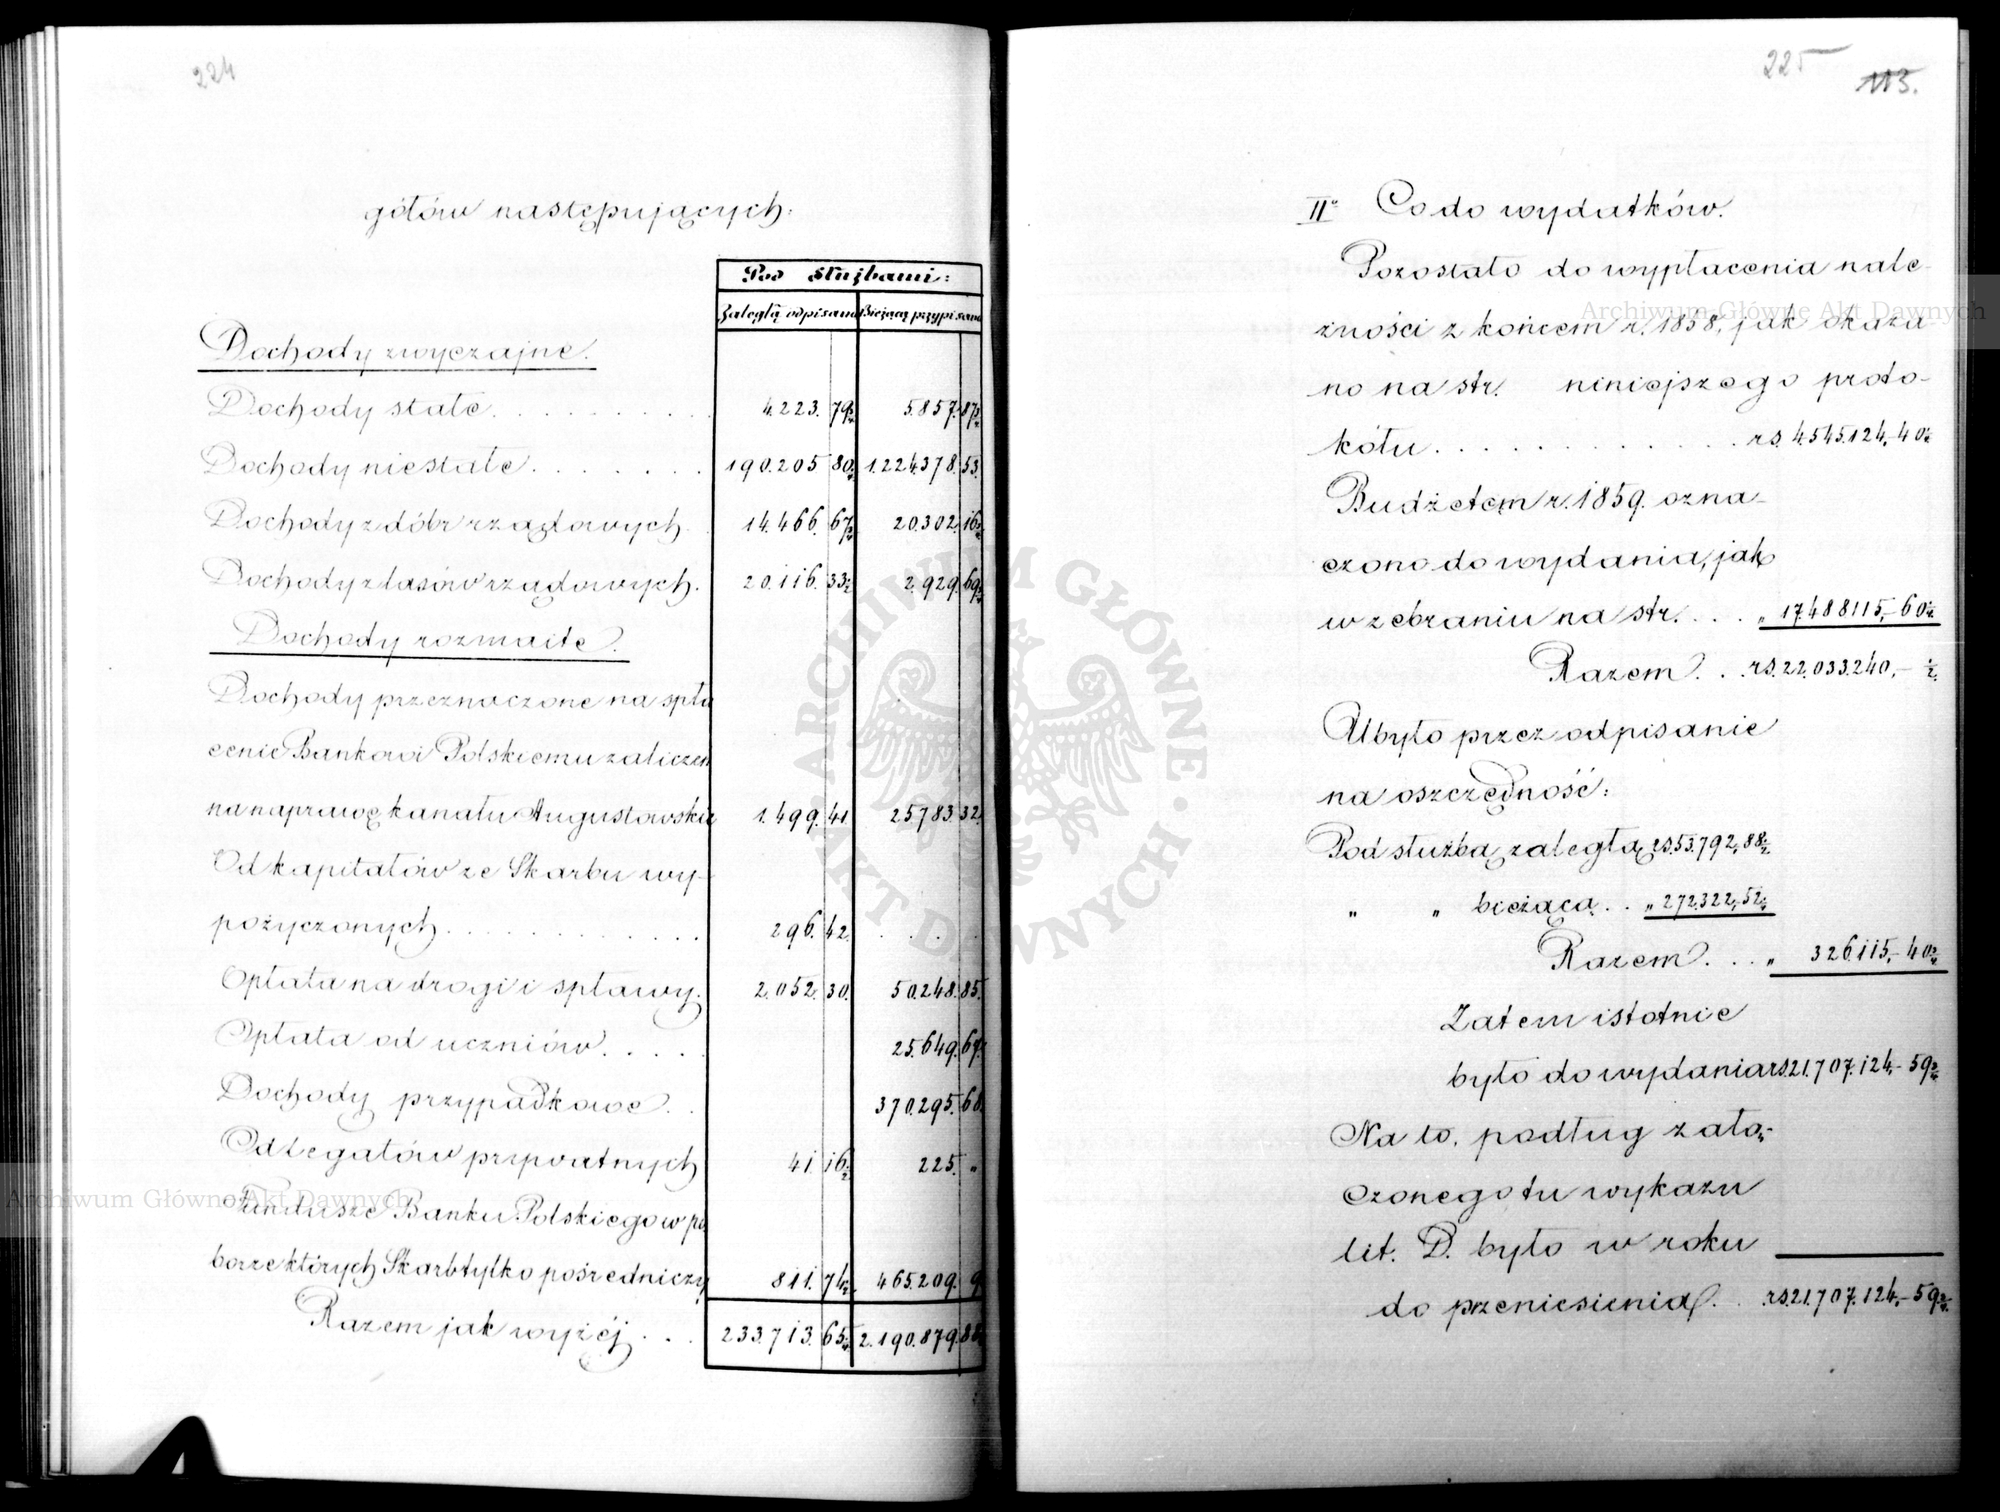 224
gółów następujących:
Pod służbami:
Zaległą odpisano Bieżącą przypisano
Dochody zwyczajne.
Dochody stałe. 4.223. 79¾ 5.857. 87½
Dochody niestałe. 190.205 80 1.224.378. 53.
Dochody z dóbr rządowych. 14.466. 67 20.302. 16
Dochody z lasów rządowych. 20.116. 33½ 2.929. 69
Dochody rozmaite.
Dochody przeznaczone na spła
cenie Bankowi Polskiemu zaliczen
na naprawę kanału Augustowskie 1.499. 41. 25783. 32.
Od kapitałów ze Skarbu wy-
pożyczonych 296. 42.
Opłata na drogi i spławy. 2.052. 30. 50.248. 85.
Opłata od uczniów 25.649. 67
Dochody przypadkowe. 370.295. 68
Od legatów prywatnych 41. 16½ 225. "
Fundusze Banku Polskiego w po
borze których Skarb tylko pośredniczy 811. 74½ 465.209. 9
Razem jak wyżéj 233.713. 65 2.190.879. 88
225
113.
II° Co do wydatków.
Pozostało do wypłacenia nale-
żności z końcem r. 1858, jak okaza
no na str. niniejszego proto-
kółu rs. 4.545.124,-40
Budżetem r. 1859. ozna-
czono do wydania, jak
w zebraniu na str. " 17.488115,-60
Razem. rs. 22.033.240,- ½
Ubyło przez odpisanie
na oszczędność:
Pod służbą zaległą rs. 53.792,88½
" " bieżącą. " 272.322,52
Razem. " 326.115,-40¾
Zatem istotnie
było do wydania rs. 21.707.124,-59¾
Na to, podług załą-
czonego tu wykazu
lit. D. było w roku
do przeniesienia. rs. 21.707.124,-59¾
Archiwum Główne Akt Dawnych
Archiwum Główne Akt Dawnych
ARCHIWUM GŁÓWNE · AKT DAWNYCH ·